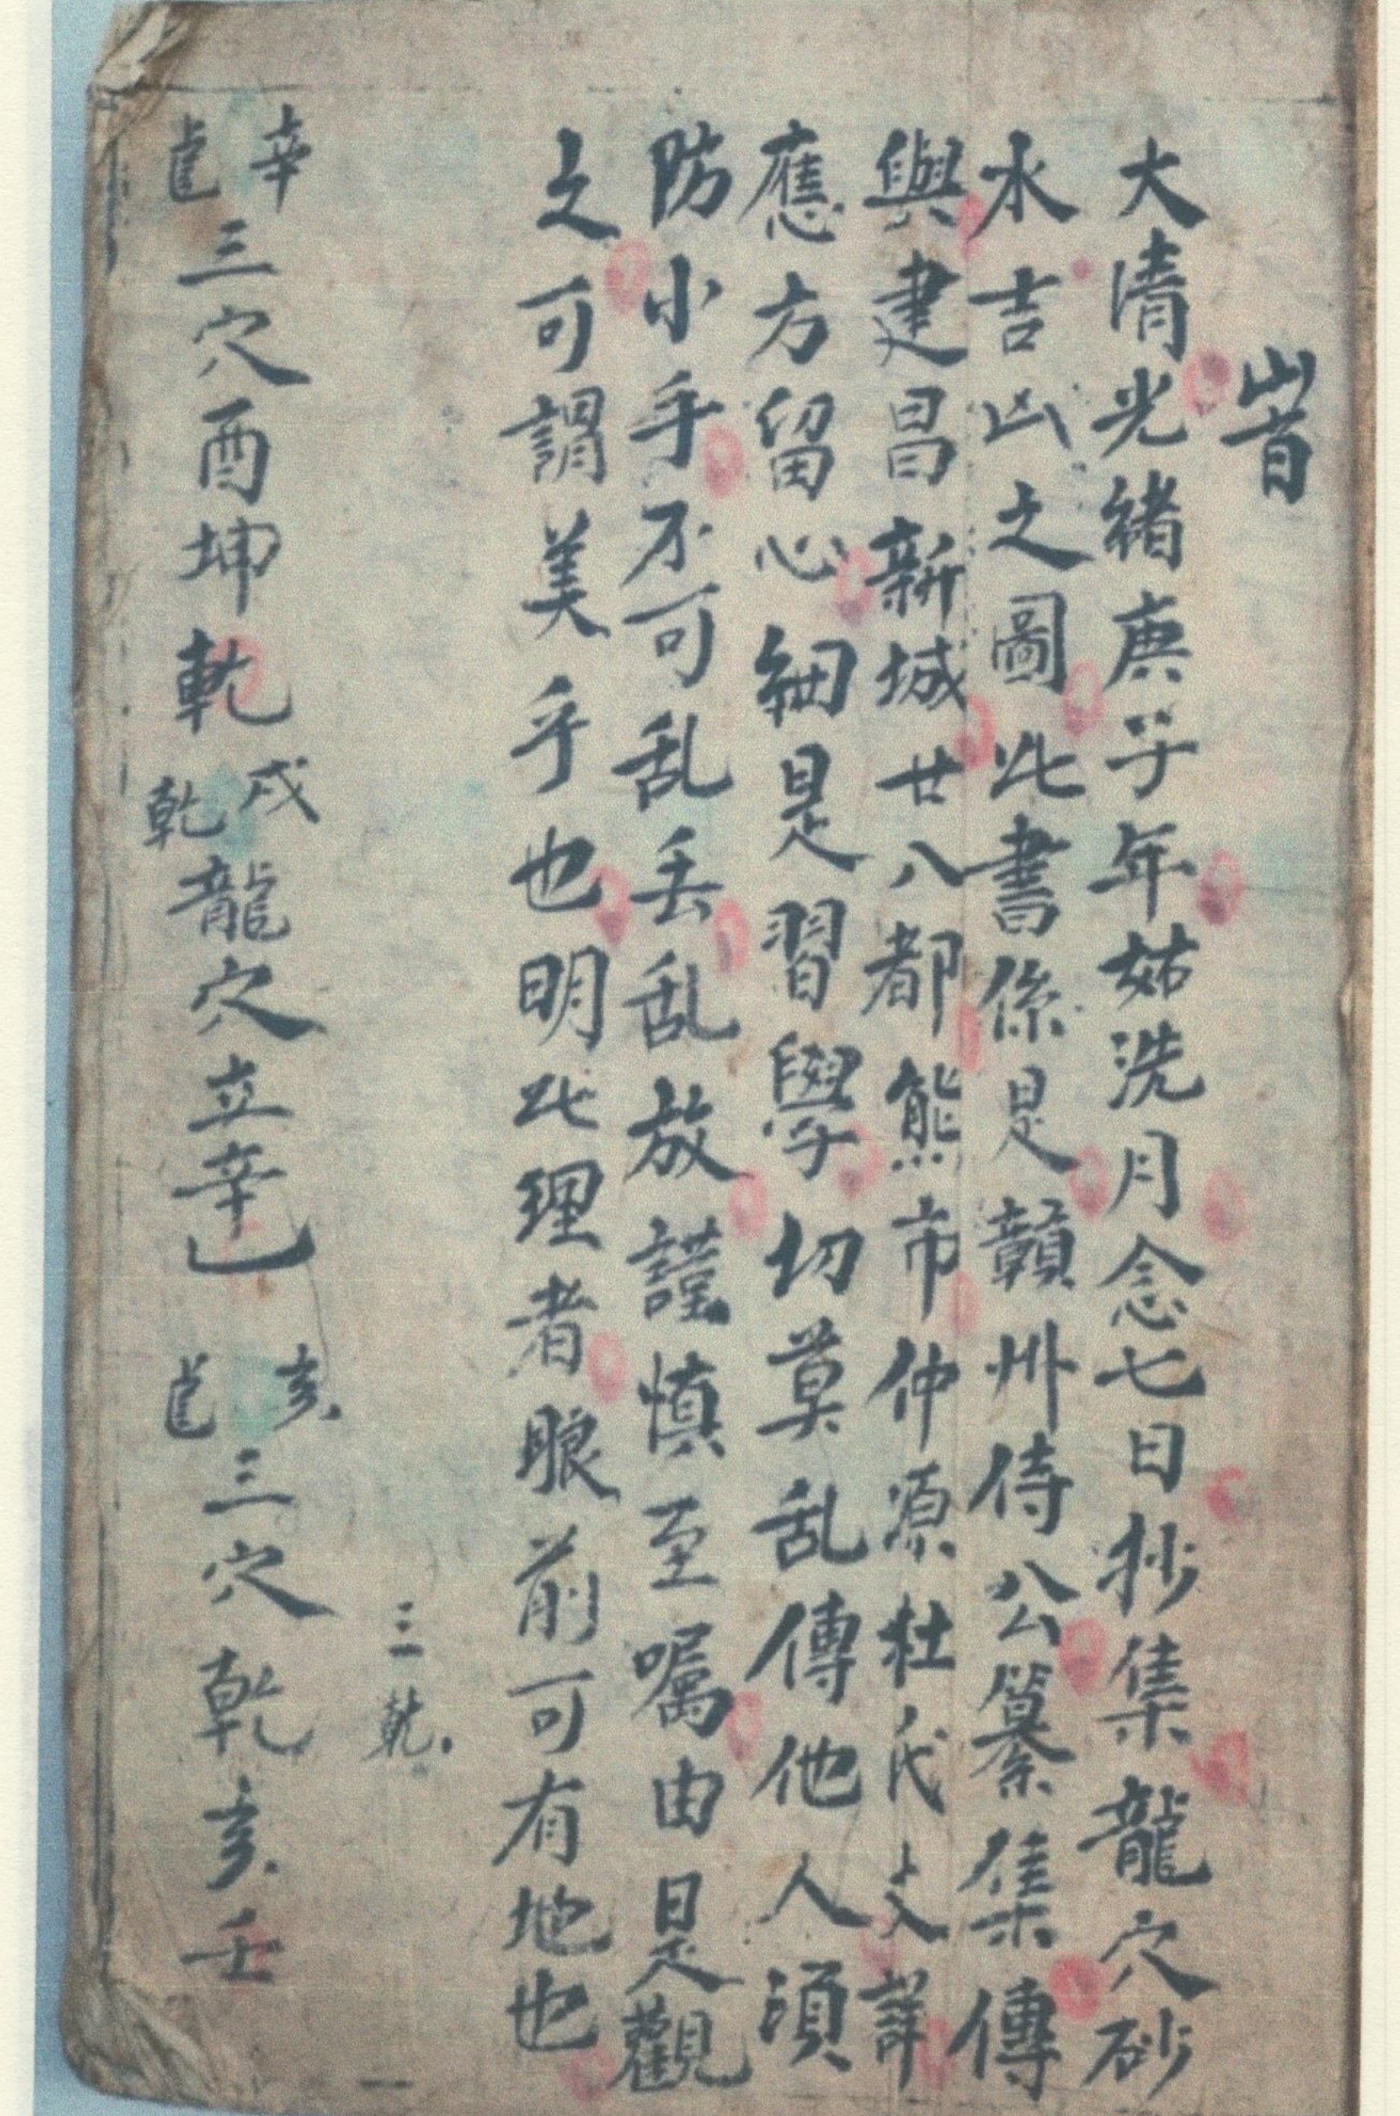 大清光緒庚子年姑洗月念七日抄集龍穴砂
水吉凶之圖此書係是贛州侍八公纂集傳
與建昌新城廿八都熊市仲源杜氏丈詳
應方留心細是習學切莫乱傳他人須
防小手不可乱丢乱放謹慎至嘱由是觀
之可謂美乎也明此理者眼前可有地也
三乾
辛
三穴酉坤乾戌乾龍穴立辛
亥
三穴乾亥壬